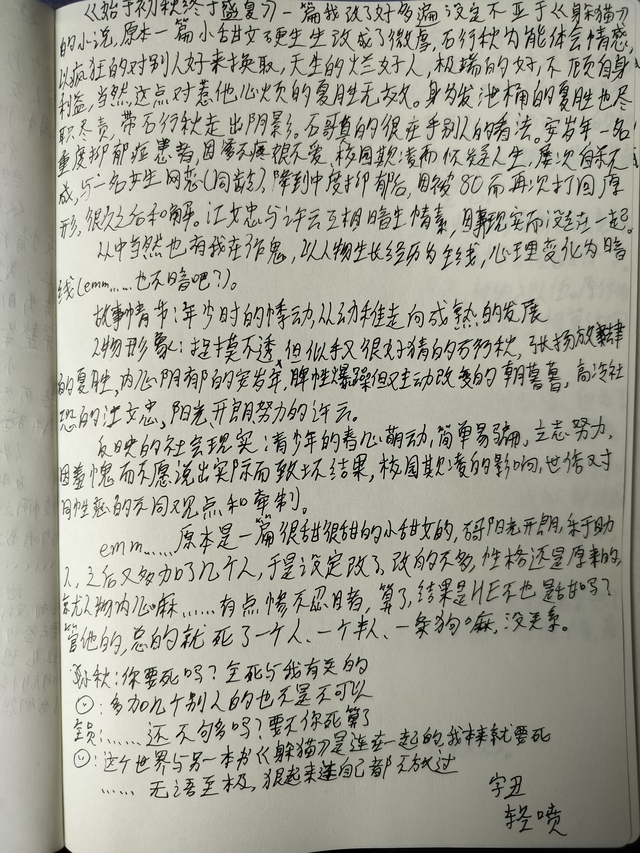 《始于初秋终于盛夏》一篇我改了好多遍设定不亚于《躲猫》
的小说,原本一篇小甜文硬生生改成了微虐,石行秋为能体会情感,
以疯狂的对别人好来换取,天生的烂好人,极端的好,不顾自身
利益,当然这点对惹他心烦的夏胜无效。身为发泄桶的夏胜也尽
职尽责,带石行秋走出阴影。石哥真的很在乎别人的看法。安岁年一名
重度抑郁症患者,因爹不疼娘不爱,校园欺凌而怀疑人生,屡次自杀不
成,与一名女生网恋(同龄),降到中度抑郁后,因被80而再次打回原
形,很久之后和解。江文忠与许云互相暗生情素,因事现实而没走在一起。
从中当然也有我在作鬼,以人物生长经历为主线,心理变化为暗
线(emm……也不暗吧?)。
故事情节:年少时的悸动,从幼稚走向成熟的发展
人物形象:捉摸不透,但似乎又很好猜的石行秋,张扬放肆
的夏胜,内心阴郁的安岁年,脾性爆躁但又主动改变的朝暮暮,高冷社
恐的江文忠,阳光开朗努力的许云。
反映的社会现实:青少年的春心萌动,简单易骗,立志努力,
因羞愧而不愿说出实际而致坏结果,校园欺凌的影响,世俗对
同性恋的不同观点和牵制。
emm……原本是一篇很甜很甜的小甜文的,石哥阳光开朗,乐于助
人,之后又多加了几个人,于是设定改了,改的不多,性格还是原来的,
就人物内心嘛……有点惨不忍睹,算了,结果是HE不也是甜吗?
管他的,总的就死了一个人、一个半人、一条狗嘛,没关系。
秋:你要死吗?全死与我有关的
:多加几个别人的也不是不可以
全员:……还不够多吗?要不你死算了
:这个世界与另一本书《躲猫》是连在一起的,我本来就要死
……无语至极,狠起来连自己都不放过
字丑
轻喷